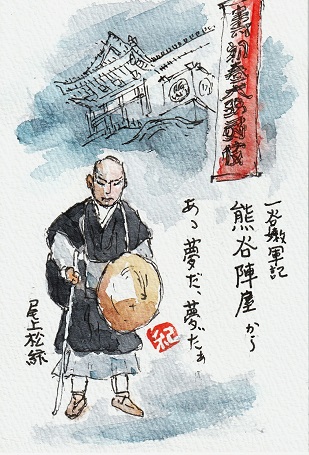 壽初春大歌舞伎
一谷嫩軍記
熊谷陣屋から
あゝ夢だ、夢だぁ
尾上松緑
紀